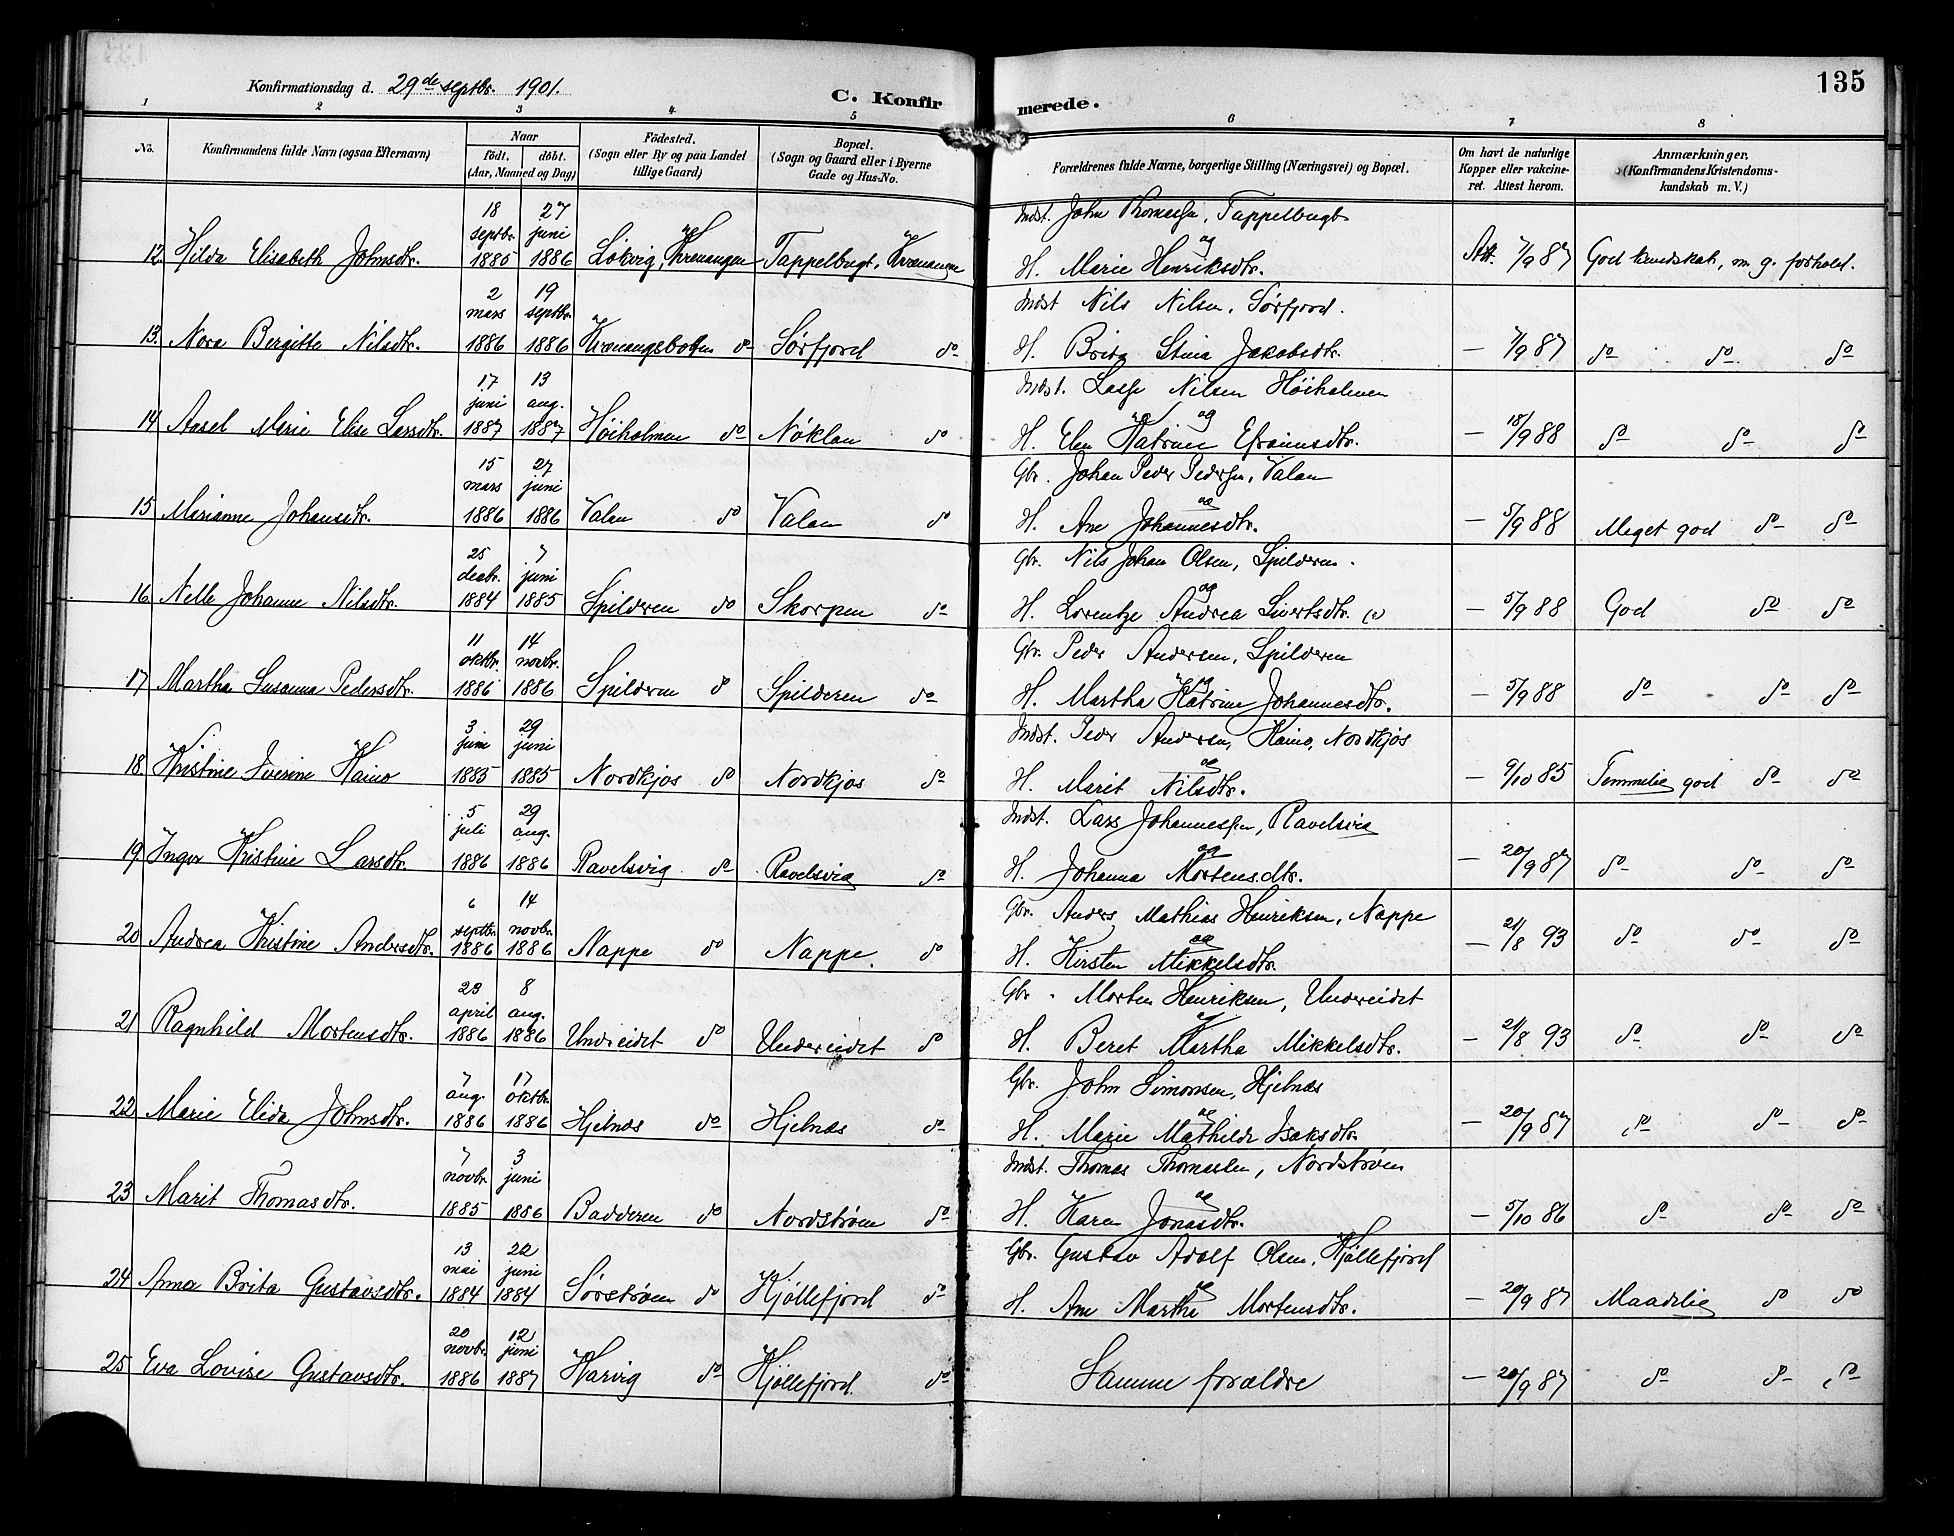 135
Konfirmationsdag d. 29de septbr. 1901.
C. Konfirmerede.
1 2 3 4 5 6 7 8
No. Konfirmandens fulde Navn (ogsaa Efternavn) Naar født. døbt. (Aar, Maaned og Dag) Fødested. (Sogn eller By og paa Landet tillige Gaard) Bopæl. (Sogn og Gaard eller i Byerne Gade og Hus-No. Forældrenes fulde Navne, borgerlige Stilling (Næringsvei) og Bopæl. Om havt de naturlige Kopper eller vakcineret. Attest herom. Anmærkninger. (Konfirmandens Kristendomskundskab m. V.)
12. Hilda Elisabeth Johnsdtr. 18 septbr. 1885 27 juni 1886 Løkvig, Kvænangen Tappelbugt, Kvænangen Indst. John Thomassen, Tappelbugt og H. Marie Henriksdtr. Att. 7/9 87 God kundskab, m. g. forhold.
13. Nora Bergitte Nilsdtr. 2 mars 1886 19 septbr. 1886 Kvænangsbotten do Sørfjord do Indst Nils Nilsen, Sørfjord. H. Brita Stina Jakobsdtr. — 7/9 87 do do do
14. Aasel Marie Elise Larsdtr. 17 juni 1887 13 aug. 1887 Høiholmen do Nøklan do Indst. Lasse Nilsen Høiholmen og H. Elen Katrine Efraimsdtr. — 18/9 88 do do do
15 Marianne Johansdtr. 15 mars 1886 27 juni 1886 Valan do Valan do Gbr. Johan Peder Pedersen, Valan og H. Ane Johannesdtr. — 5/9 88 Meget god do do
16. Nelle Johanne Nilsdtr. 25 decbr. 1884 7 juni 1885 Spilderen do Skorpen do Gbr. Nils Johan Olsen, Spilderen. og H. Lorentze Andrea Sivertsdtr. — 5/9 88 God do do
17 Martha Susanna Pedersdtr. 11 oktbr. 1886 14 novbr. 1886 Spilderen do Spilderen do Gbr. Peder Andersen, Spilderen og H. Martha Katrine Johannesdtr. — 5/9 88 do do do
18. Kristine Iverine Haino 3 juni 1885 29 juni 1885 Nordkjos do Nordkjos do Indst. Peder Andersen, Haino, Nordkjos og H. Marit Nilsdtr. — 9/10 85 Temmelig god do do
19. Inger Kristine Larsdtr. 5 juli 1886 29 aug. 1886 Ravelsvig do Ravelsvig do Indst. Lars Johannessen, Ravelsvig og H. Johanna Mortensdtr. — 20/9 87 do do do
20 Andrea Kristine Andersdtr. 6 septbr. 1886 14 novbr. 1886 Nappe do Nappe. do Gbr. Anders Mathias Henriksen, Nappe og H. Kirsten Mikkelsdtr. — 21/8 93 do do do
21 Ragnhild Mortensdtr. 23 april 1886 8 aug. 1886 Undereidet do Undereidet do Gbr. Morten Henriksen, Undereidet og H. Beret Martha Mikkelsdtr. — 21/8 93 do do do
22 Marie Elida Johnsdtr. 7 aug. 1886 17 oktbr. 1886 Hjelnæs do Hjelnæs do Gbr. John Simonsen, Hjelnæs og H. Marie Mathilde Isaksdtr. — 20/9 87 do do do
23 Marit Thomasdtr. 7 novbr. 1885 3 juni 1886 Badderen do Nordstrøm do Indst. Thomas Thomassen, Nordstrøm og H. Karen Jonasdtr. — 5/10 86 do do do
24 Anna Brita Gustavsdtr. 13 mai 1884 22 juni 1884 Sørstrøm do Kjøllefjord do Gbr. Gustav Adolf Olsen, Kjøllefjord og H. Ane Marthe Mortensdtr. — 20/9 87 Maadelig do do
25 Eva Lovise Gustavsdtr. 20 novbr. 1886 12 juni 1887 Harvig do Kjøllefjord do Samme forældre — 20/9 87 do do do